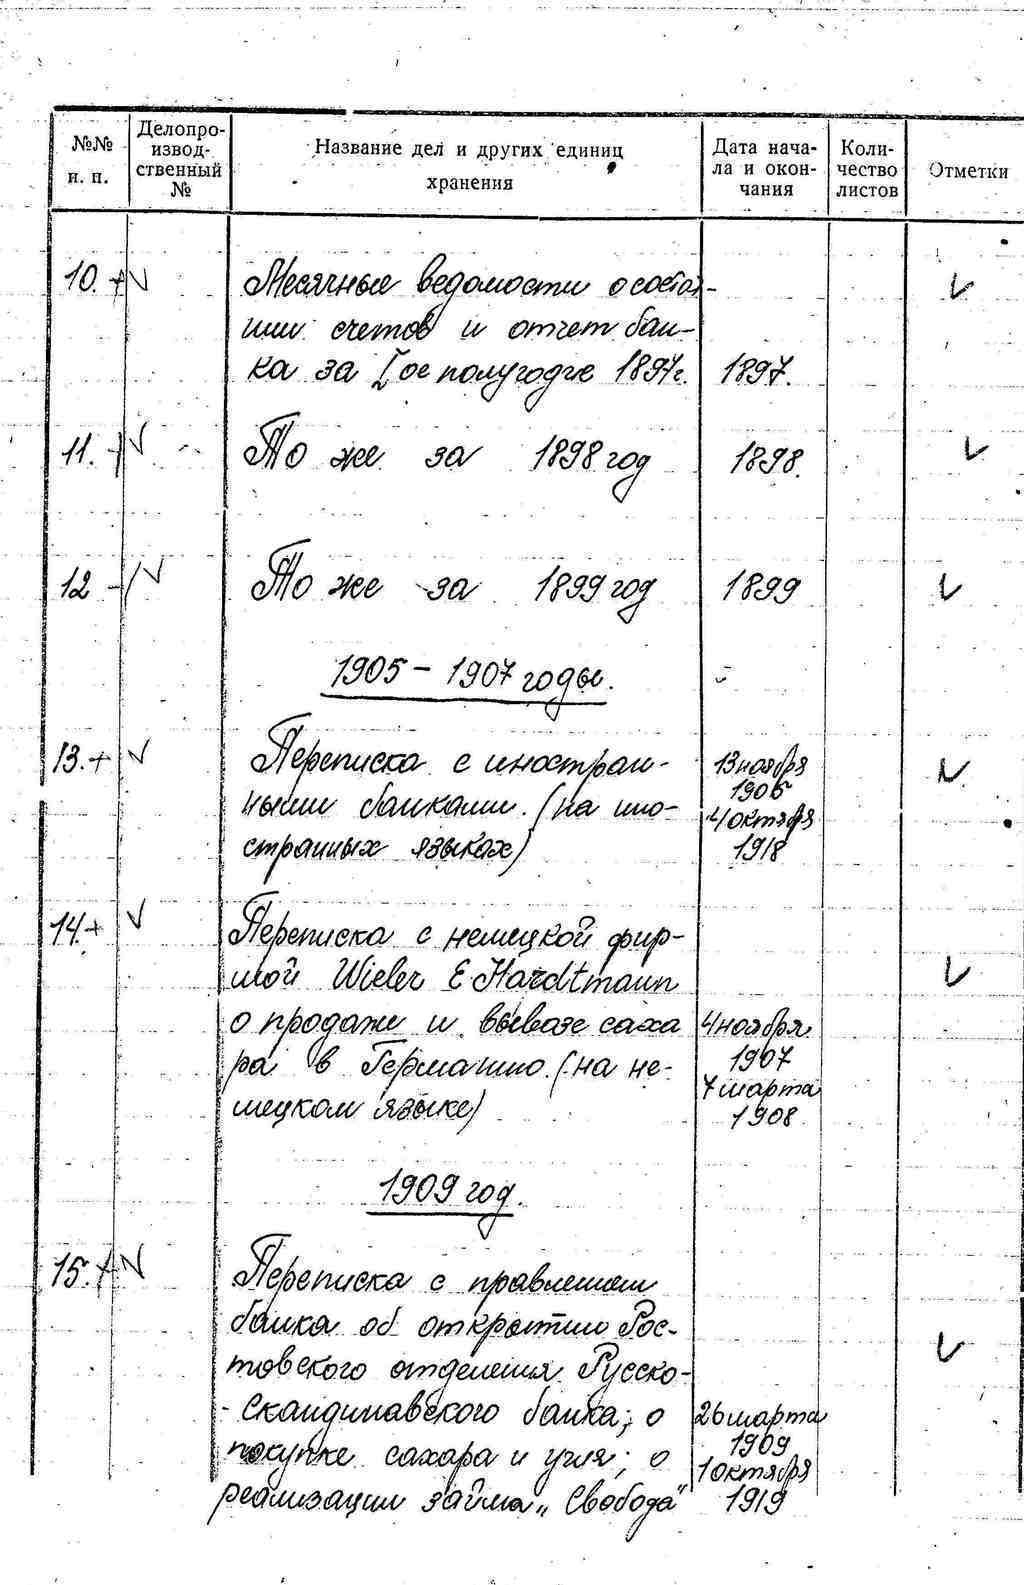 №№ п. п.
Делопроизводственный №
Название дел и других единиц хранения
Дата начала и окончания
Количество листов
Отметки
10. + V
Месячные ведомости о состоя-
нии счетов и отчет бан-
ка за I ое полугодие 1897г. 1897.
V
11. + V То же за 1898 год 1898. V
12 - V То же за 1899 год 1899 V
1905 - 1907 годы.
13. + V
Переписка с иностран- 13 ноября
ными банками. (на ино- 1905
странных языках) 4 октября
1918
V
14. + V
Переписка с немецкой фир-
мой Wieler & Hardtmann
о продаже и вывозе саха 4 ноября
ра в Германию. (на не- 1907
мецком языке) 7 марта
1908
V
1909 год.
15. + V
Переписка с правлением
банка об открытии Рос-
товского отделения Русско-
- Скандинавского банка; о 26 марта
покупке сахара и угля; о 1909
реализации займа „Свобода" 1 октября
1919
V